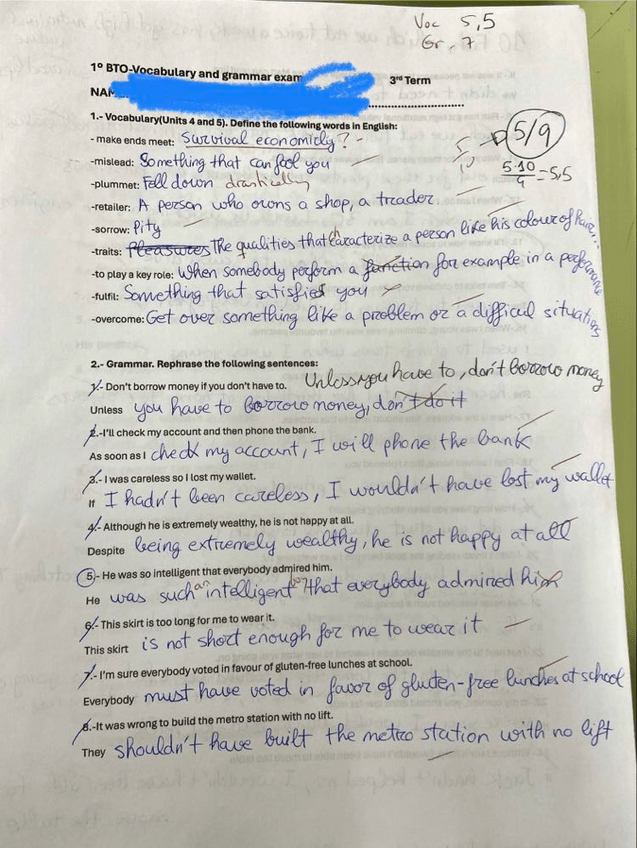 Voc 5,5
Gr. 7
1º BTO-Vocabulary and grammar exam 3rd Term
1.- Vocabulary(Units 4 and 5). Define the following words in English:
- make ends meet: Survival economicly?
5/9
5·10/9=5,5
-mislead: Something that can fool you
-plummet: Fell down drastically
-retailer: A person who owns a shop, a trader
-sorrow: Pity
-traits: Pleasures The qualities that caracterize a person like his colour of hair...
-to play a key role: When somebody perform a function for example in a performance
-fulfil: Something that satisfies you
-overcome: Get over something like a problem or a difficul situation
2.- Grammar. Rephrase the following sentences:
1.- Don't borrow money if you don't have to. Unless you have to, don't borrow money
Unless you have to borrow money, don't do it
2.-I'll check my account and then phone the bank.
As soon as I check my account, I will phone the bank
3.- I was careless so I lost my wallet.
If I hadn't been careless, I wouldn't have lost my wallet
4.- Although he is extremely wealthy, he is not happy at all.
Despite being extremely wealthy, he is not happy at all
5.- He was so intelligent that everybody admired him.
He was such an intelligent boy that everybody admired him
6.- This skirt is too long for me to wear it.
This skirt is not short enough for me to wear it
7.- I'm sure everybody voted in favour of gluten-free lunches at school.
Everybody must have voted in favor of gluten-free lunches at school
8.-It was wrong to build the metro station with no lift.
They shouldn't have built the metro station with no lift